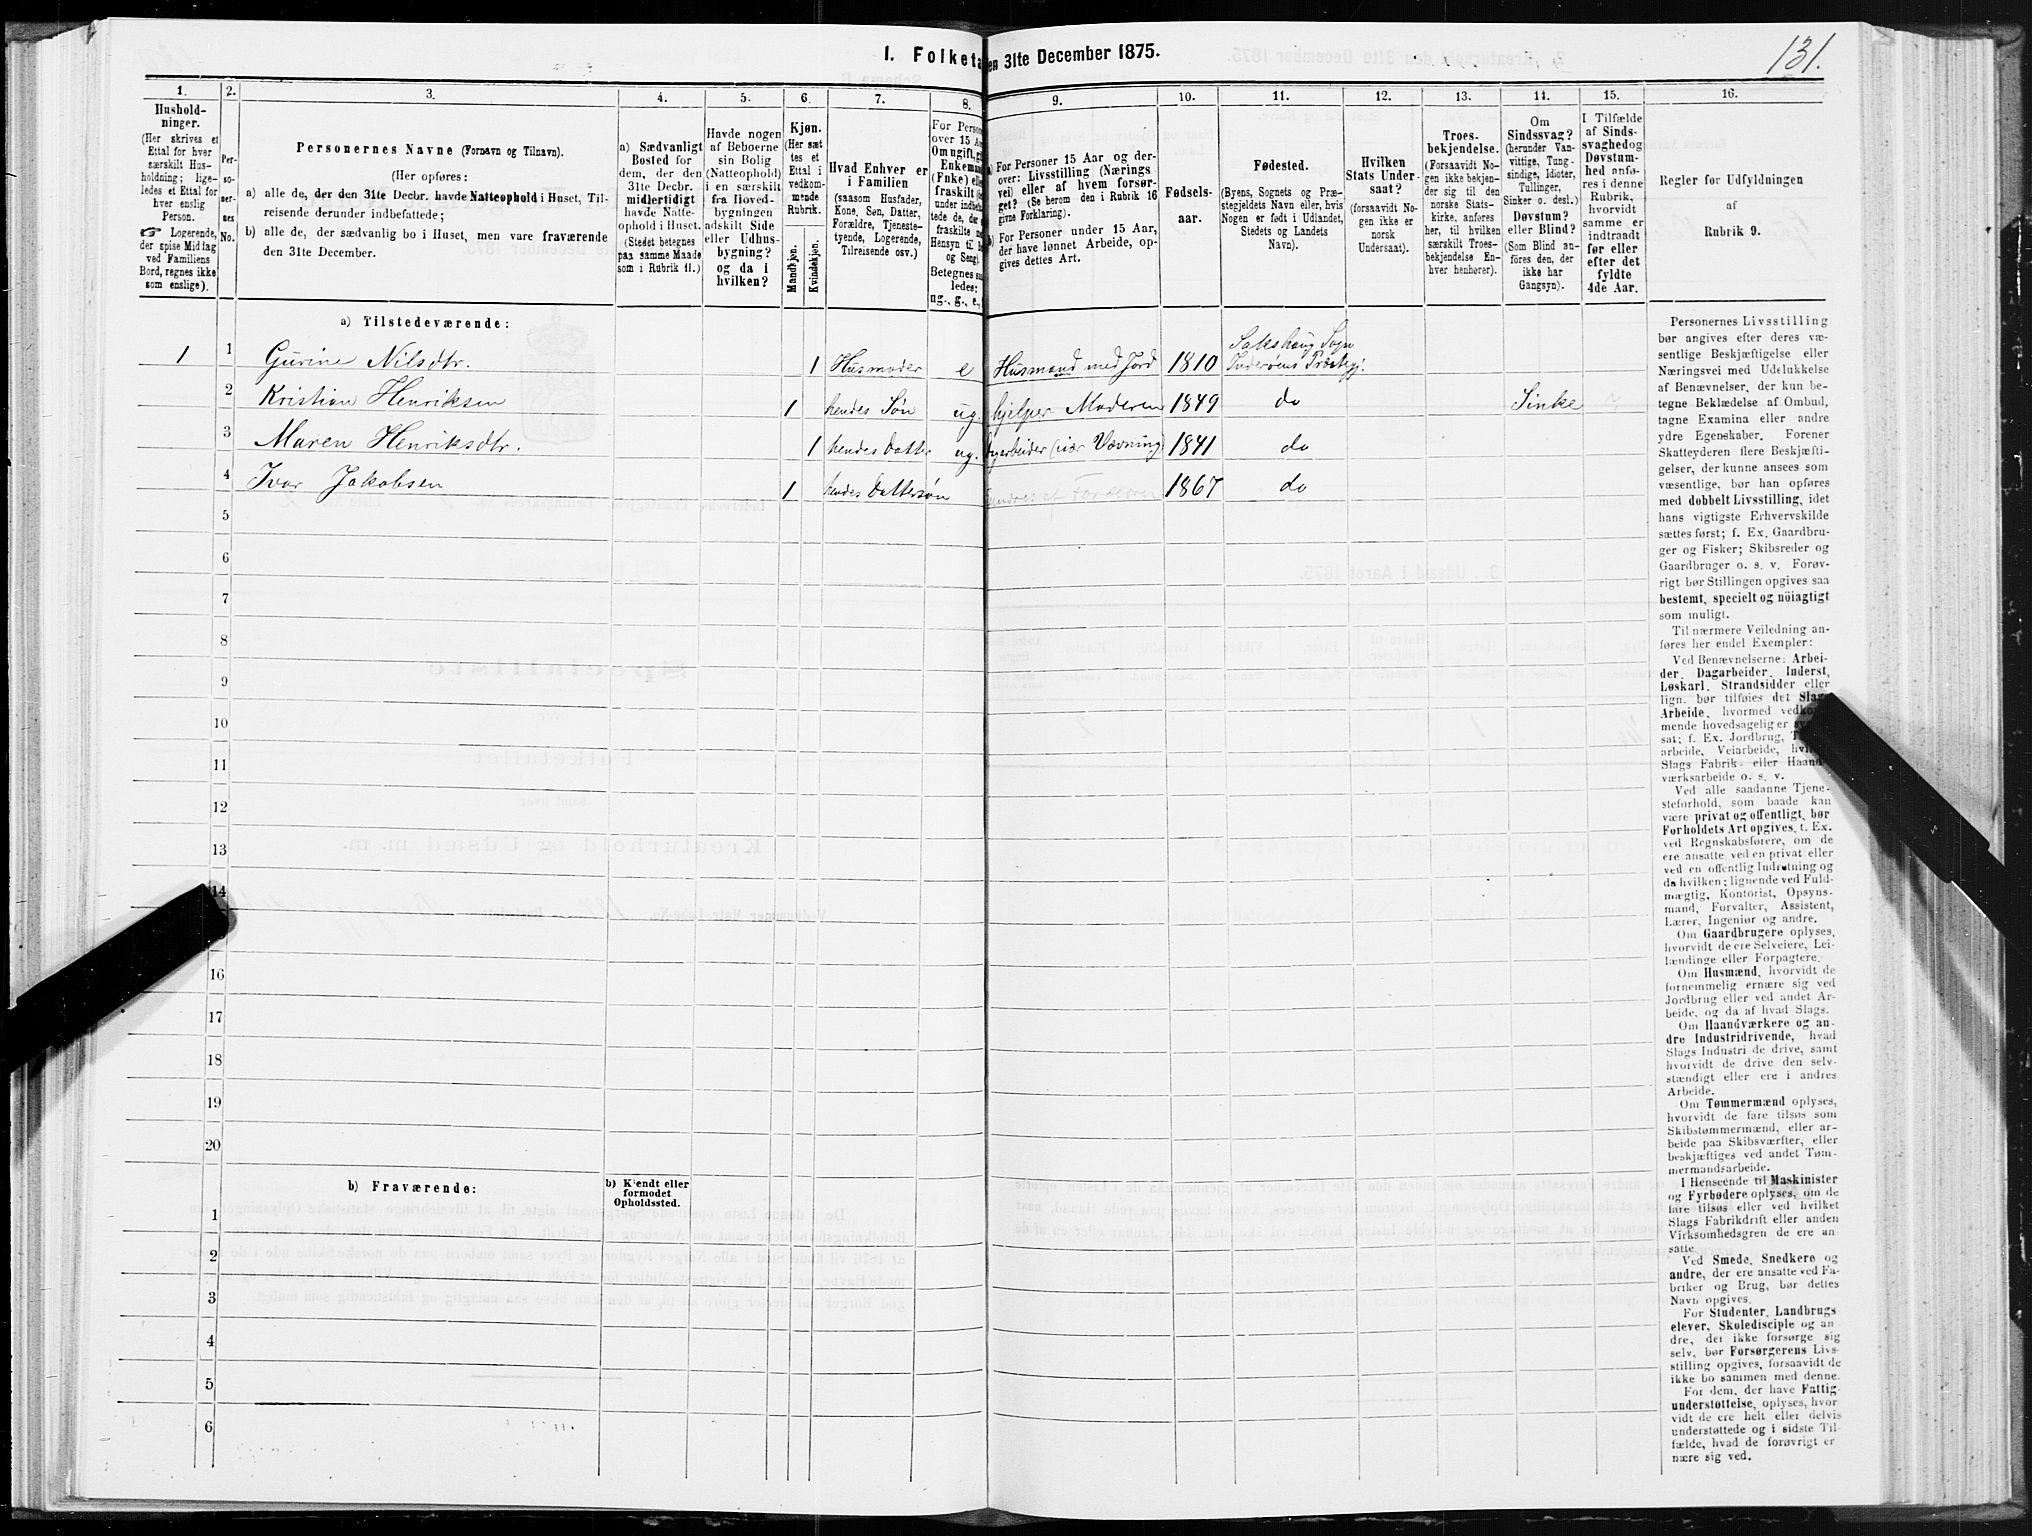 131.
I. Folketa
en 31te December 1875.
1. 2. 3. 4. 5. 6. 7. 8. 9. 10. 11. 12. 13. 14. 15. 16.
Hushold-
ninger.
(Her skrives et
Ettal for hver
særskilt Hus-
holdning; lige-
ledes et Ettal for
hver enslig
Person.
☞ Logerende,
der spise Middag
ved Familiens
Bord, regnes ikke
som enslige).
Per-
so-
ner-
nes
No.
Personernes Navne (Fornavn og Tilnavn).
(Her opføres:
a) alle de, der den 31te Decbr. havde Natteophold i Huset, Til-
reisende derunder indbefattede;
b) alle de, der sædvanlig bo i Huset, men vare fraværende
den 31te December.
a) Sædvanligt
Bosted for
dem, der den
31te Decbr.
midlertidigt
havde Natte-
ophold i Huset.
(Stedet betegnes
paa samme Maade
som i Rubrik 11.)
Havde nogen
af Beboerne
sin Bolig
(Natteophold)
i en særskilt
fra Hoved-
bygningen
adskilt Side
eller Udhus-
bygning?
og da i
hvilken?
Kjøn.
(Her sæt
tes et
Ettal i
vedkom-
mende
Rubrik.
Mandkjøn.
Kvindekjøn.
Hvad Enhver er
i Familien
(saasom Husfader,
Kone, Søn, Datter,
Forældre, Tjeneste-
tyende, Logerende,
Tilreisende osv.)
For Perso
over 15 Aa
Omugift, gi
Enkeman
(Fnke) el
fraskilt
under indbe
tede de,
fraskilte
Hensyn til
og Seng).
Betegnes s
ledes:
ug., g., e.,
a) For Personer 15 Aar og der-
over: Livsstilling (Nærings
vei) eller af hvem forsør-
get? (Se herom den i Rubrik 16
givne Forklaring).
b) For Personer under 15 Aar,
der have lønnet Arbeide, op-
gives dettes Art.
Fødsels-
aar.
Fødested.
(Byens, Sognets og Præ-
stegjeldets Navn eller, hvis
Nogen er født i Udlandet,
Stedets og Landets
Navn).
Hvilken
Stats Under-
saat?
(forsaavidt No-
gen ikke er
norsk
Undersaat).
Troes-
bekjendelse.
(Forsaavidt No-
gen ikke bekjen-
der sig til den
norske Stats-
kirke, anføres
her, til hvilken
særskilt Troes-
bekjendelse En-
hver henhører).
Om
Sindssvag?
(herunder Van-
vittige, Tung-
sindige, Idioter,
Tullinger,
Sinker o. desl.)
Døvstum?
eller Blind?
(Som Blind an-
føres den, der
ikke har
Gangsyn).
I Tilfælde
af Sinds-
svaghed og
Døvstum-
hed anfø-
res i denne
Rubrik,
hvorvidt
samme er
indtraadt
før eller
efter det
fyldte
4de Aar.
Regler for Udfyldningen
af
Rubrik 9.
a) Tilstedeværende:
1 1 Gurine Nilsdtr. 1 Husmoder e Husmand med Jord 1810 Sakshaug Sogn Inderøens Præstegj.
2 Kristian Henriksen 1 hendes Søn ug. hjelper Moderen 1849 do Sinke
3 Maren Henriksdtr. 1 hendes Datter ug. (især Vævning) 1841 do
4 Ivar Jakobsen 1 hendes Dattersøn 1867 do
5
6
7
8
9
10
11
12
13
14
16
17
18
19
20
b) Fraværende:
b) Kjendt eller
formodet
Opholdssted.
1
2
3
4
5
6
Personernes Livsstilling
bør angives efter deres væ-
sentlige Beskjæftigelse eller
Næringsvei med Udelukkelse
af Benævnelser, der kun be-
tegne Beklædelse af Ombud,
tagne Examina eller andre
ydre Egenskaber. Forener
Skatteyderen flere Beskjæfti-
gelser, der kunne ansees som
væsentlige, bør han opføres
med dobbelt Livsstilling, idet
hans vigtigste Erhvervskilde
sættes først; f. Ex. Gaardbru-
ger og Fisker; Skibsreder og
Gaardbruger o. s. v. Forøv-
rigt bør Stillingen opgives saa
bestemt, specielt og nöiagtigt
som muligt.
Til nærmere Veiledning an-
føres her endel Exempler:
Ved Benævnelserne: Arbei-
der, Dagarbeider, Inderst,
Løskarl, Strandsidder eller
lign. bør tilføies det Slags
Arbeide, hvormed vedkom-
mende hovedsagelig er
sat; f. Ex. Jordbrug,
arbeide, Veiarbeide,
Slags Fabrik- eller Haand-
værksarbeide o. s. v.
Ved alle saadanne Tjene-
steforhold, som baade kan
være privat og offentligt, bør
Forholdets Art opgives, t. Ex.
ved Regnskabsførere, om de
ere ansatte ved en privat eller
ved en offentlig Indretning og
da hvilken; lignende ved Fuld-
mægtig, Kontorist, Opsyns-
mand, Forvalter, Assistent,
Lærer, Ingeniør og andre.
Om Gaardbrugere oplyses,
hvorvidt de ere Selveiere, Lei-
lændinge eller Forpagtere.
Om Husmænd, hvorvidt de
fornemmelig ernære sig ved
Jordbrug eller ved andet Ar-
beide, og da af hvad Slags.
Om Haandværkere og an-
dre Industridrivende, hvad
Slags Industri de drive, samt
hvorvidt de drive den selv-
stændigt eller ere i andres
Arbeide.
Om Tømmermænd oplyses,
hvorvidt de fare tilsøs som
Skibstømmermænd, eller ar-
beide paa Skibsværfter, eller
beskjæftiges ved andet Tøm-
mermandsarbeide.
I Henseende til Maskinister
og Fyrbødere oplyses, om de
fare tilsøs eller ved hvilket
Slags Fabrikdrift eller anden
Virksomhedsgren de ere an-
satte.
Ved Smede, Snedkere og
andre, der ere ansatte ved Fa-
briker og Brug, bør dettes
Navn opgives.
For Studenter, Landbrugs
elever, Skoledisciple og an-
dre, der ikke forsørge sig
selv, bør Forsørgerens Livs-
stilling opgives, forsaavidt de
ikke bo sammen med denne.
For dem, der have Fattig-
understøttelse, oplyses, hvor
vidt de ere helt eller delvis
understøttede og i sidste Til-
fælde, hvad de forøvrigt er
nære sig ved.